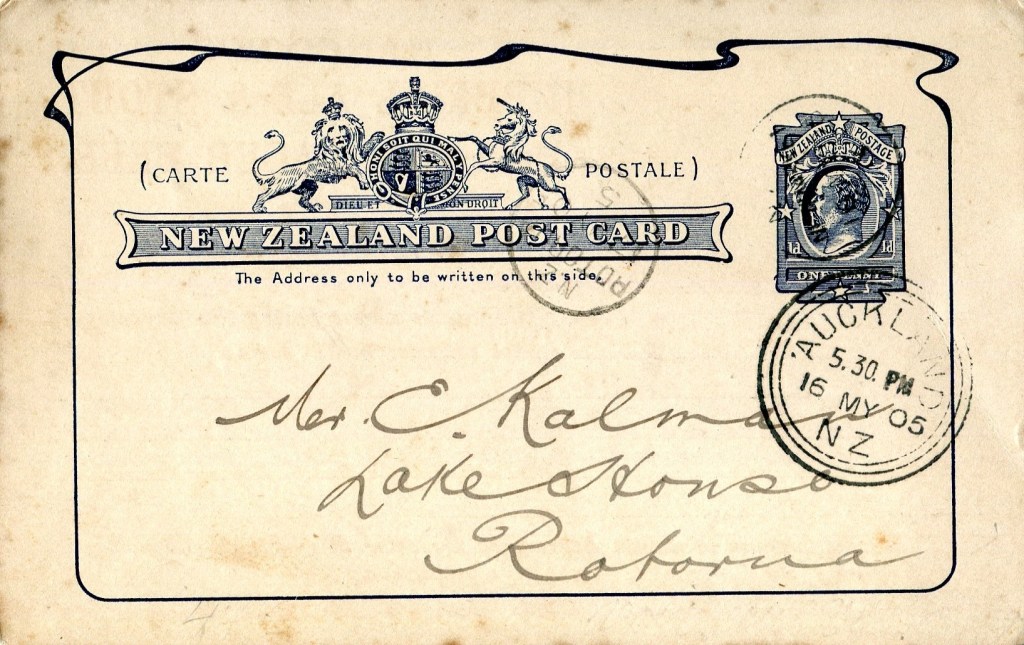 (CARTE POSTALE)
HONI SOIT QUI MAL Y PENSE
DIEU ET MON DROIT
NEW ZEALAND POST CARD
The Address only to be written on this side.
NEW ZEALAND POSTAGE
1d 1d
ONE PENNY
AUCKLAND
5.30 PM
16 MY 05
NZ
Mr. C. Kalman
Lake House
Rotorua